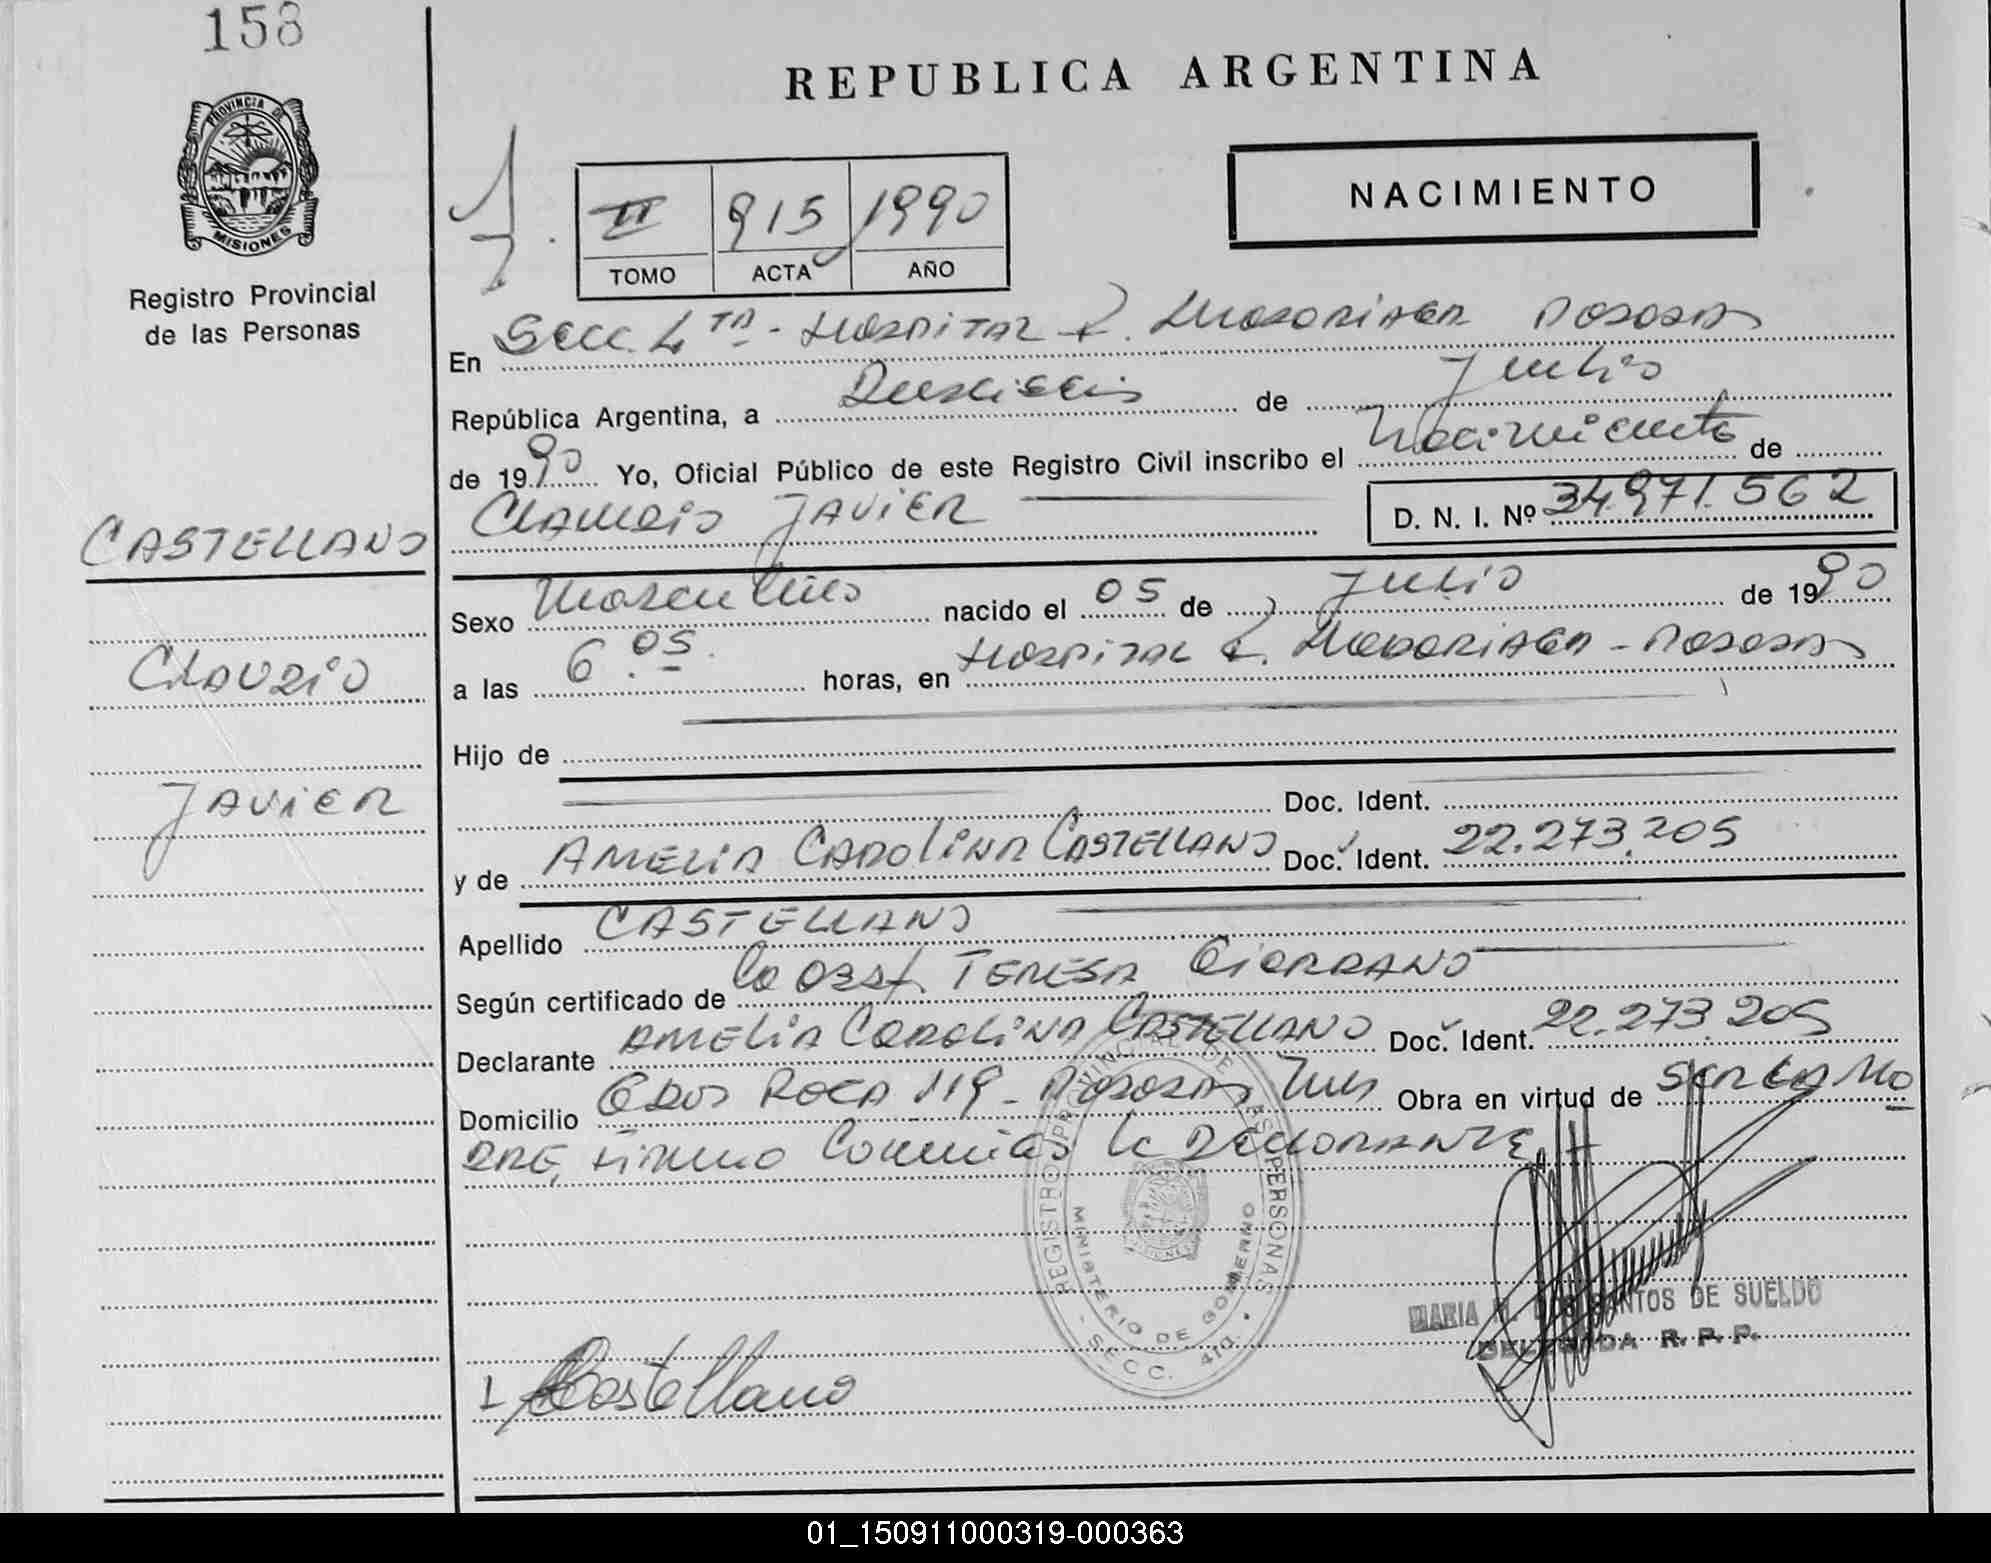 158
PROVINCIA DE
MISIONES
Registro Provincial
de las Personas
REPUBLICA ARGENTINA
NACIMIENTO
II 915 1990
TOMO ACTA AÑO
En Secc. 4ta - Hospital R. Madariaga Posadas
República Argentina, a Dieciseis de Julio
de 1990 Yo, Oficial Público de este Registro Civil inscribo el Nacimiento de
Claudio Javier
D. N. I. Nº 34.971.562
CASTELLANO
Claudio
Javier
Sexo Masculino nacido el 05 de Julio de 1990
a las 6.05 horas, en Hospital R. Madariaga - Posadas
Hijo de
Doc. Ident.
y de Amelia Carolina Castellano Doc. Ident. 22.273.205
Apellido CASTELLANO
Según certificado de la Obst. Teresa Giordano
Declarante Amelia Carolina Castellano Doc. Ident. 22.273.205
Domicilio Roca 119 - Posadas Mns Obra en virtud de ser la Ma
dre, firma la Declarante
REGISTRO PROVINCIAL DE LAS PERSONAS
MINISTERIO DE GOBIERNO
- SECC. 4ta.
MARIA DOS SANTOS DE SUELDO
DELEGADA R. P. P.
Castellano
01_150911000319-000363